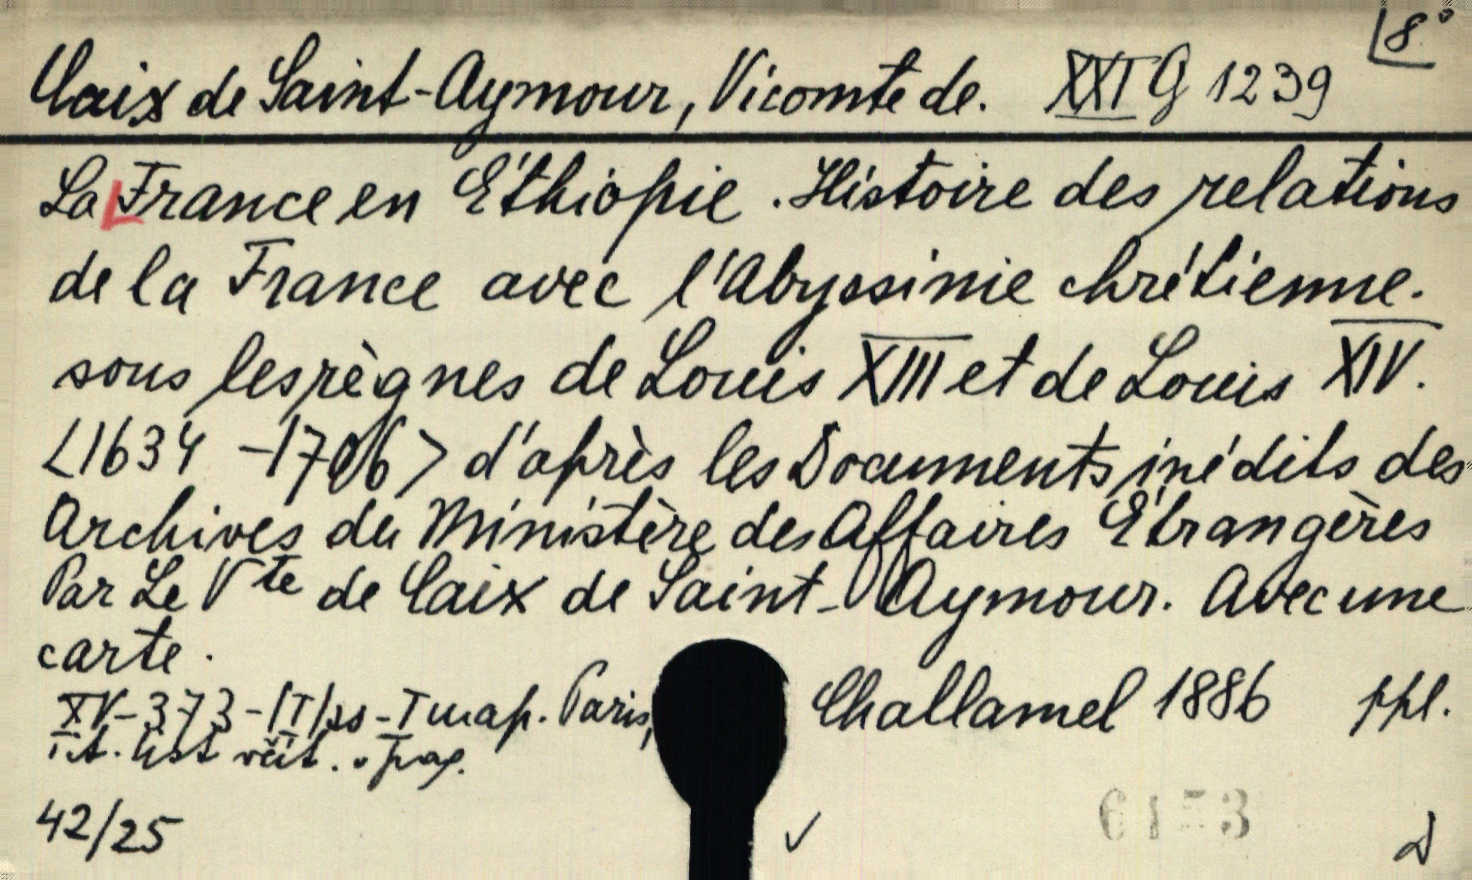 8°
Caix de Saint-Aymour, Vicomte de. XXI G 1239
La France en Éthiopie. Histoire des relations
de la France avec l'Abyssinie chrétienne.
sous les règnes de Louis XIII et de Louis XIV.
<1634 -1706> d'après les Documents inédits des
Archives du Ministère des Affaires Étrangères
Par Le Vte de Caix de Saint-Aymour. Avec une
carte.
XV-373-|I|ss-I map. Paris, Challamel 1886 ppl.
42/25